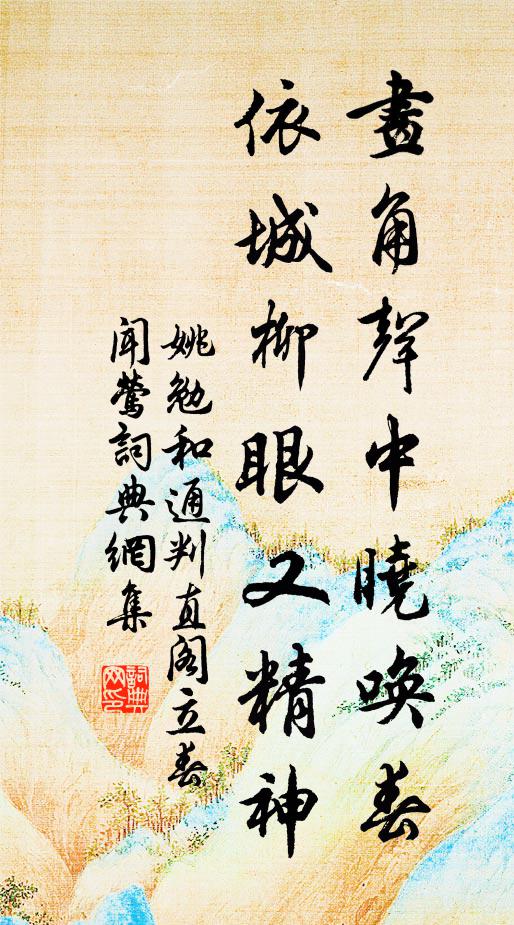 畫角聲中曉喚春
依城柳眼又精神
姚勉和通判直閣立春
聞鶯詞典網集
詞典
网印